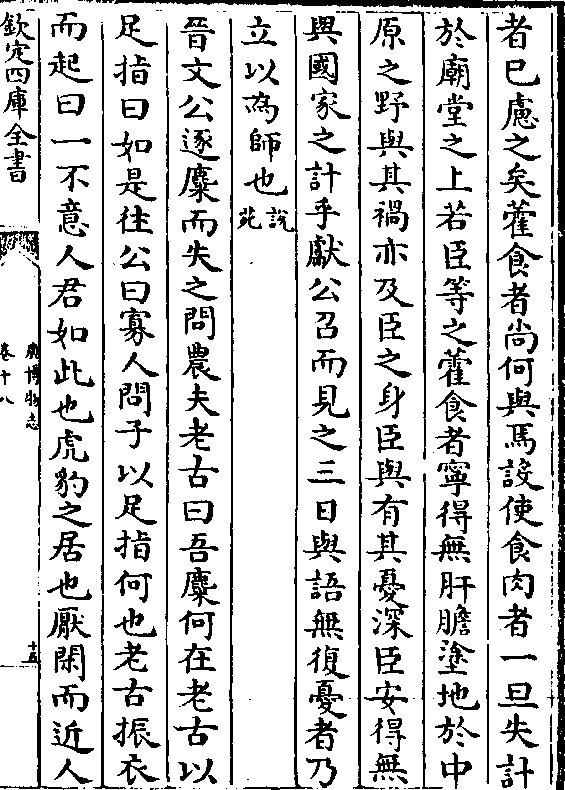 者已慮之矣藿食者尚何與焉設使食肉者一旦失計
於廟堂之上若臣等之藿食者寧得無肝膽塗地於中
原之野與其禍亦及臣之身臣與有其憂深臣安得無
與國家之計乎獻公召而見之三日與語無復憂者乃
立以為師也說苑
晉文公逐麋而失之問農夫老古曰吾麋何在老古以
足指曰如是往公曰寡人問子以足指何也老古振衣
而起曰一不意人君如此也虎豹之居也厭閑而近人
欽定四庫全書
廣博物志
卷十八
十五